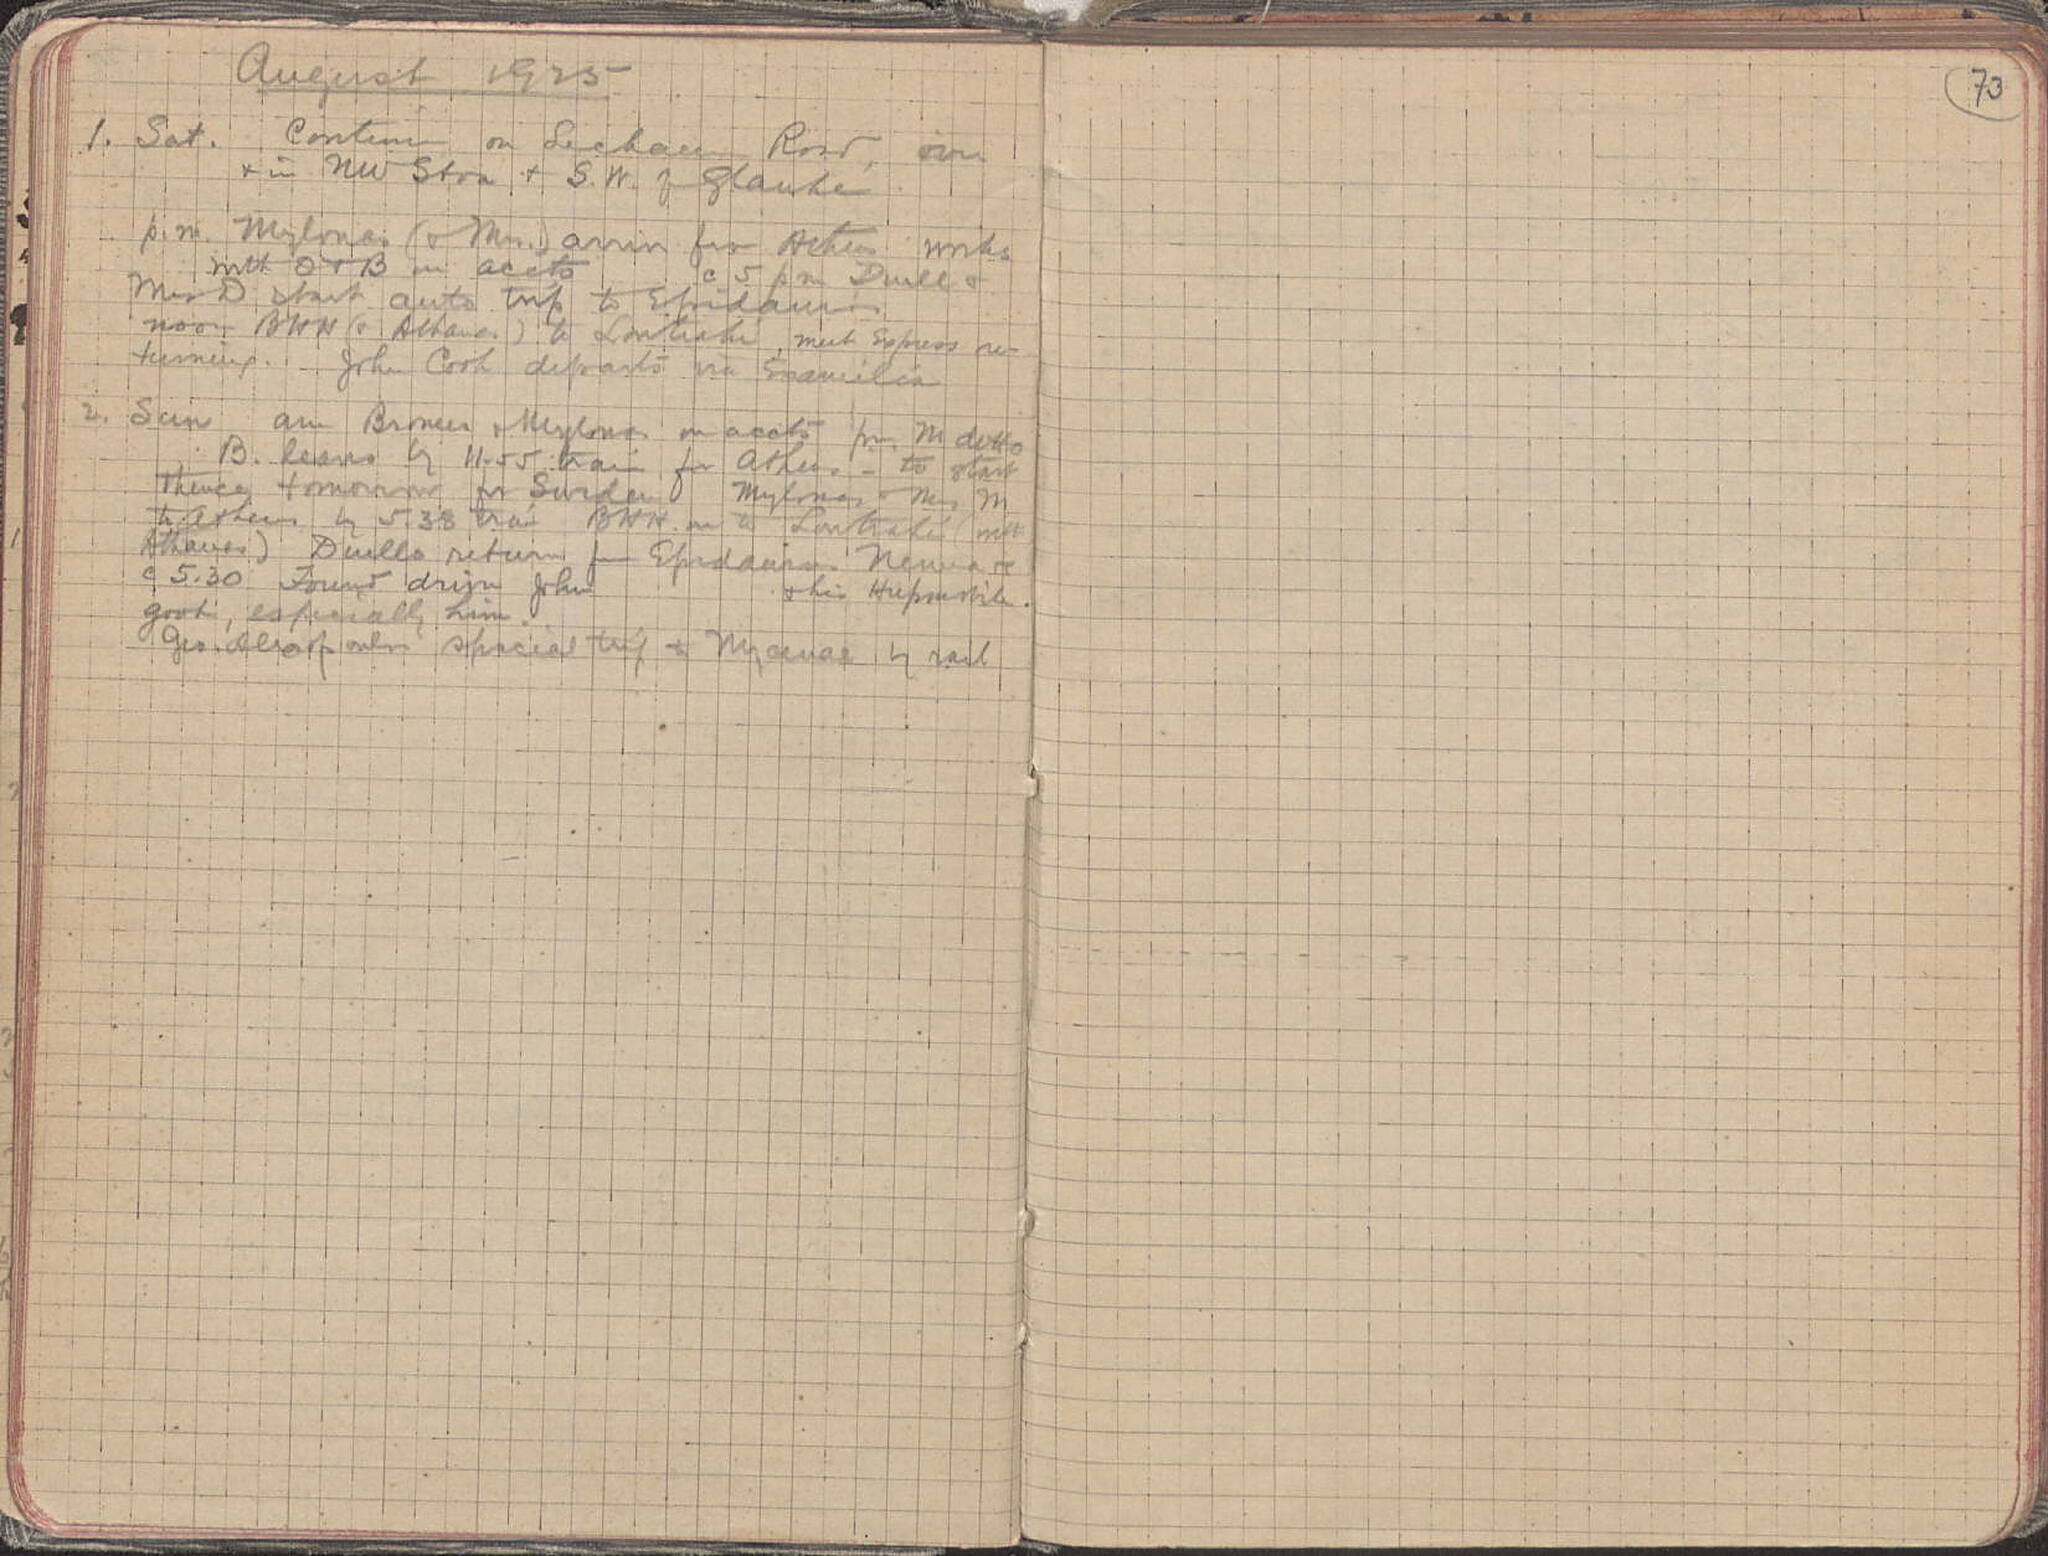 73
August 1925
1. Sat. Continue on Lechaeum Road, over
+ in NW Stoa + S.W. of Glauke
p.m. Mylonas (& Mrs.) arrive from Athens works
with O + B on accts c 5 pm Duell &
Mrs D start auto trip to Epidaurus
noon BHH (& Athanas.) to Loutraki, meet Express re-
turning. John Cook departs via Examilia
2. Sun am Broneer & Mylonas on accts pm M ditto
B. leaves by 11.55 train for Athens – to start
thence tomorrow for Sweden Mylonas & Mrs M
to Athens by 5.38 train BHH on to Loutraki (with
Athanas) Duells return from Epidaurus Nemea &c
c 5.30 Found driver John & his Hupmobile
good, especially him.
Geo. special trip to Mycenae by rail